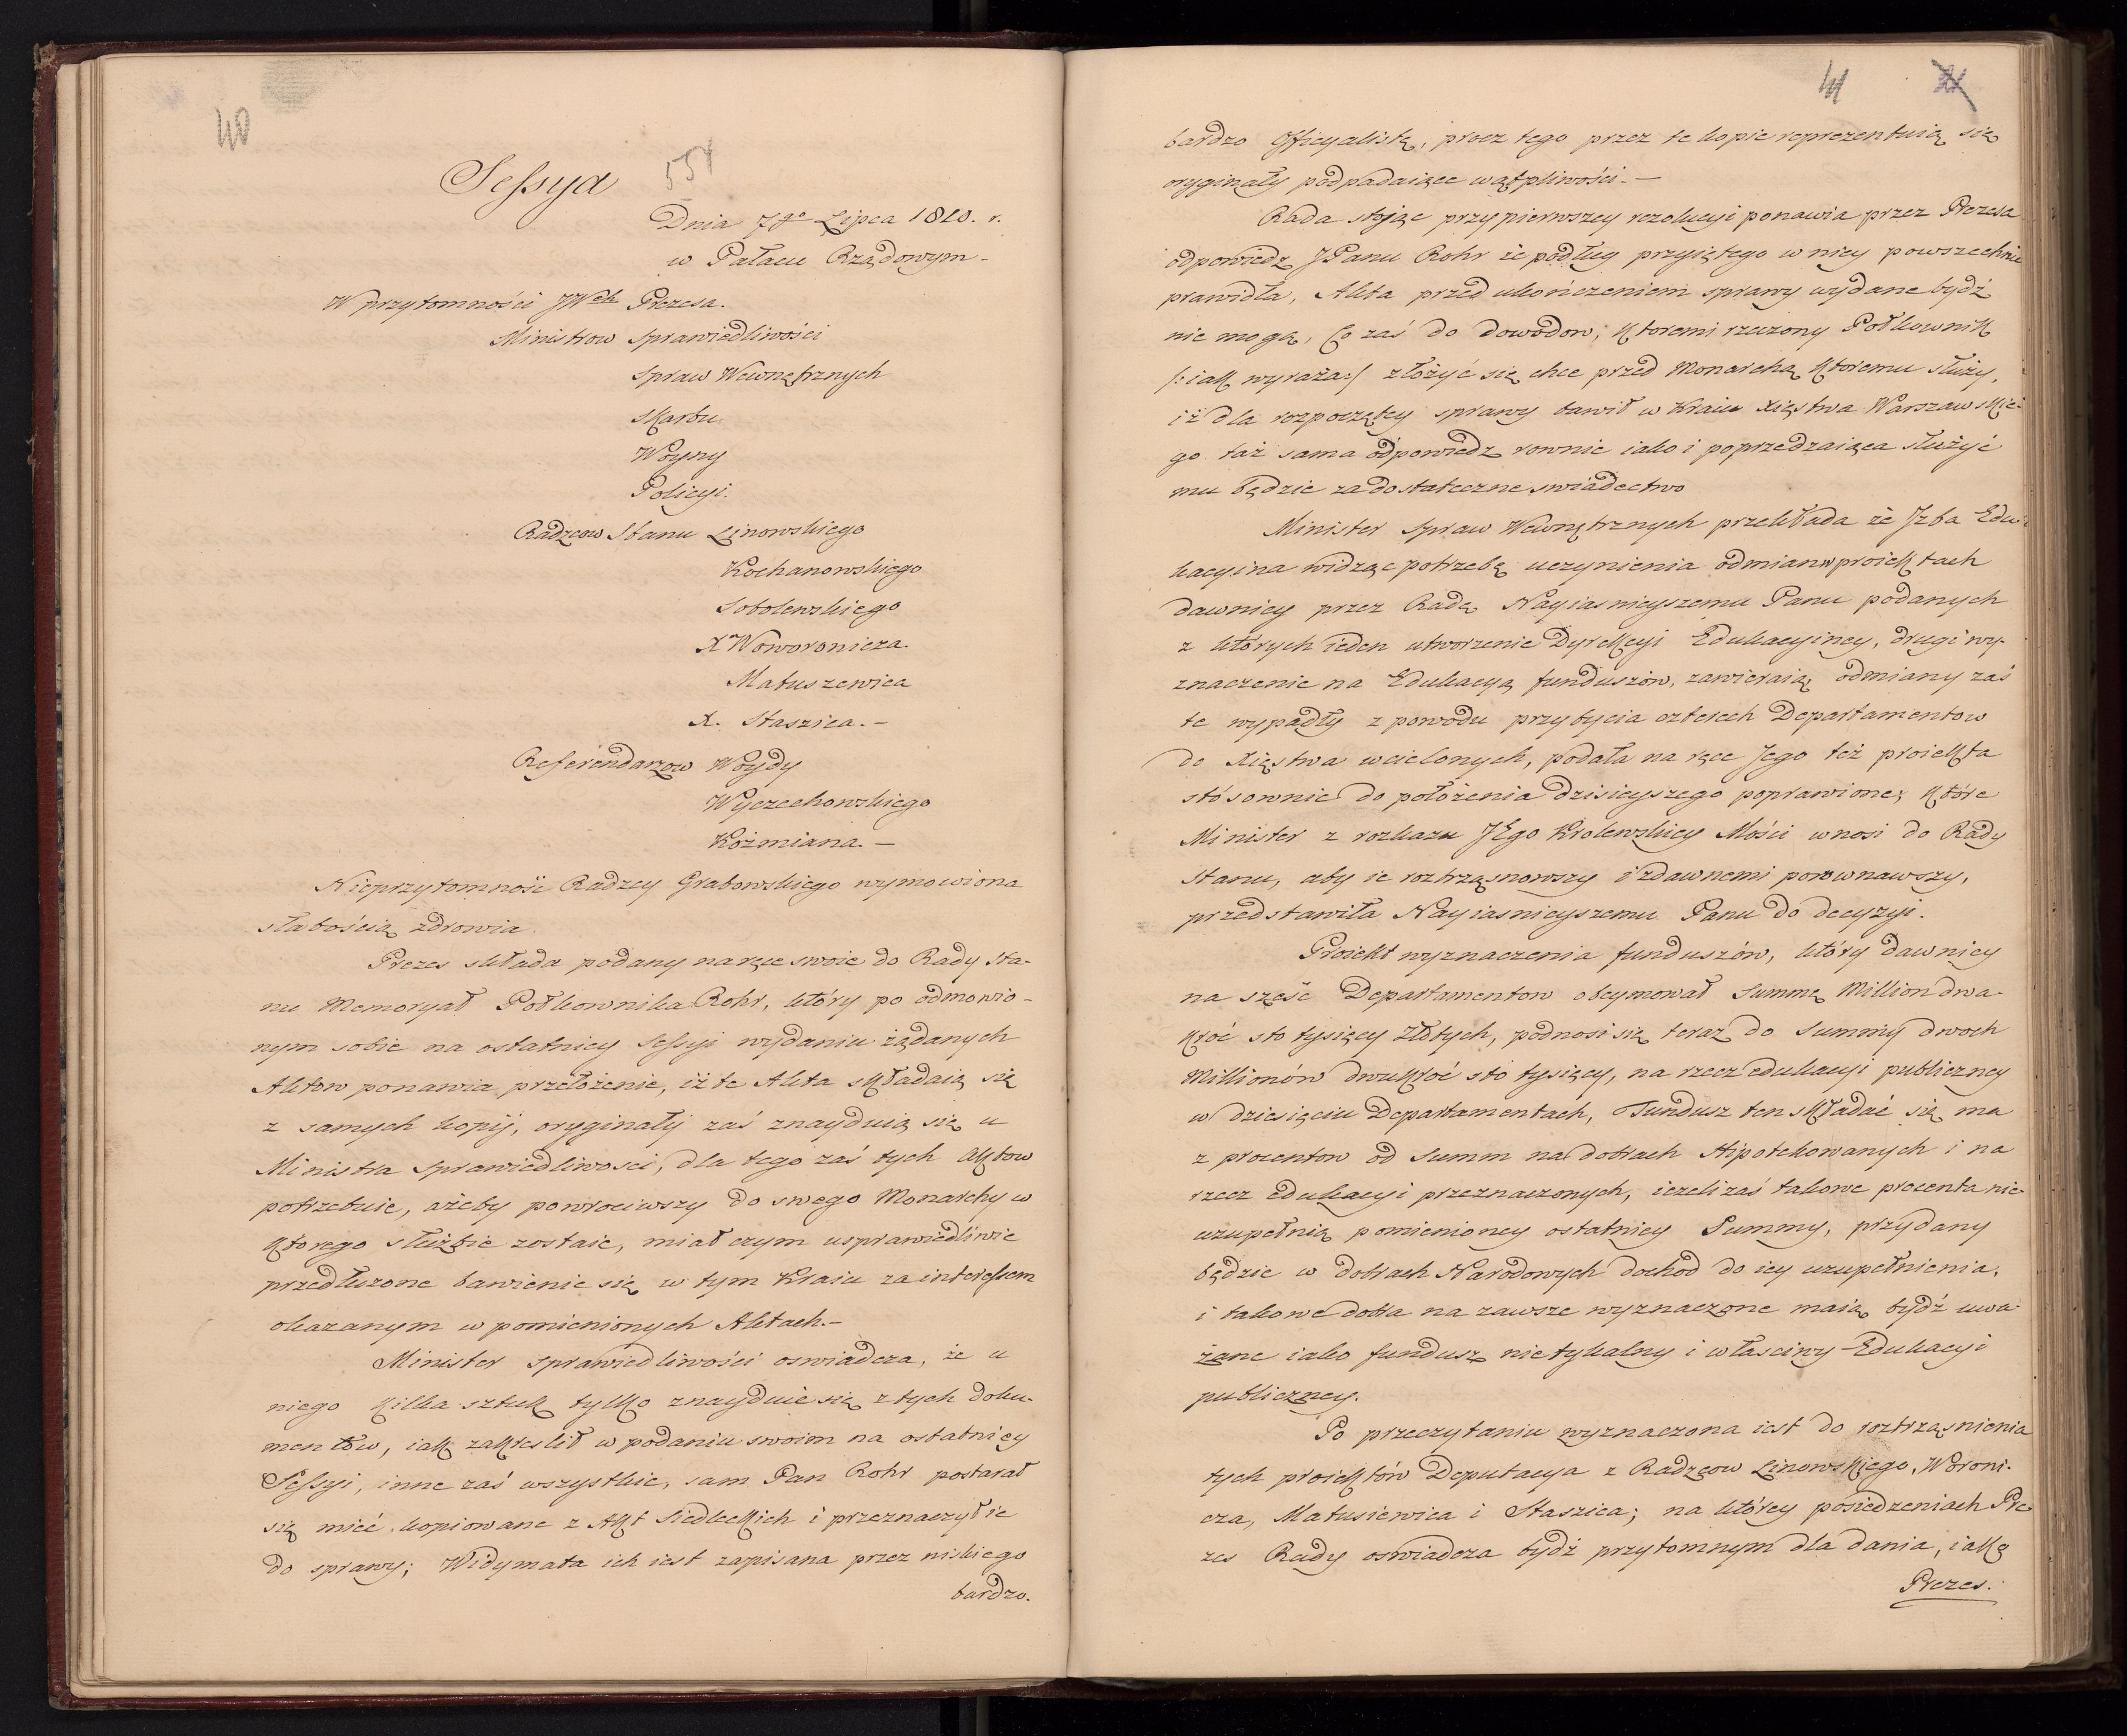 40
Sessya 554
Dnia 7go Lipca 1810. r.
w Pałacu Rządowym -
W przytomności JWch Prezesa.
Ministrow Sprawiedliwości
Spraw Wewnętrznych
Skarbu
Woyny
Policyi.
Radzcow Stanu Linowskiego
Kochanowskiego
Sobolewskiego
X Woworonicza.
Matuszewica
X. Staszica. -
Referendarzow Woydy
Wyczechowskiego
Koźmiana. -
Nieprzytomność Radzcy Grabowskiego wymowiona
słabością zdrowia
Prezes składa podany na ręce swoie do Rady Sta-
nu Memoryał Połkownika Rohr, który po odmowio-
nym sobie na ostatniey Sessyi wydaniu żądanych
Aktow ponawia przełożenie, iż te Akta składaią się
z samych kopij, oryginały zaś znayduią się u
Ministra Sprawiedliwosci, dla tego zaś tych Aktow
potrzebuie, ażeby powrociwszy do swego Monarchy w
ktorego służbie zostaie, miał czym usprawiedliwić
przedłużone bawienie się w tym Kraiu za interessem
okazanym w pomienionych Aktach. -
Minister Sprawiedliwości oswiadcza, że u
niego kilka sztuk tylko znayduie się z tych doku-
mentów, iak zakreslił w podaniu swoim na ostatniey
Sessyi, inne zaś wszystkie, sam Pan Rohr postarał
się mieć kopiowane z Akt Siedleckich i przeznaczył ie
do sprawy; Widymata ich iest zapisana przez niskiego
bardzo.
41 21
bardzo Officyalistę, procz tego przez te kopie reprezentuią się
oryginały podpadaiące wątpliwości. -
Rada stojąc przy pierwszey rezolucyi ponawia przez Prezesa
odpowiedz JPanu Rohr że podług przyiętego w niey powszechnie
prawidła, Akta przed ukończeniem sprawy wydane bydź
nie mogą, Co zaś do dowodow, ktoremi rzeczony Połkownik
/: iak wyraża :/ złożyć się chce przed Monarchą ktoremu służy,
iż dla rozpoczętey sprawy bawił w Kraiu Xięstwa Warszawskie-
go taż sama odpowiedz rownie iako i poprzedzaiąca służyć
mu będzie za dostateczne swiadectwo
Minister Spraw Wewnętrznych przekłada że Izba Edu-
kacyina widząc potrzebę uczynienia odmian w proiektach
dawniey przez Radę Nayiasnieyszemu Panu podanych
z których ieden utworzenie Dyrekcyi Edukacyiney, drugi wy-
znaczenie na Edukacyą funduszów, zawieraią odmiany zaś
te wypadły z powodu przybycia czterech Departamentow
do Xięstwa wcielonych, podała na ręce Jego też proiekta
stósownie do położenia dzisieyszego poprawione; które
Minister z rozkazu JEgo Krolewskiey Mości wnosi do Rady
Stanu, aby ie roztrząsnowszy i z dawnemi porownawszy,
przedstawiła Nayiasnieyszemu Panu do decyzyi.
Proiekt wyznaczenia funduszów, który dawniey
na sześc Departamentow obeymował Summę Million dwa-
kroć sto tysięcy Złotych, podnosi się teraz do Summy dwoch
Millionów dwukroć sto tysięcy, na rzecz edukacyi publiczney
w dziesięciu Departamentach, Fundusz ten składać się ma
z procentow od Summ na dobrach Hipotekowanych i na
rzecz edukacyi przeznaczonych, ieżeli zaś takowe procenta nie-
uzupełnią pomienioney ostatniey Summy, przydany
będzie w dobrach Narodowych dochod do iey uzupełnienia,
i takowe dobra na zawsze wyznaczone maią bydź uwa-
żane iako fundusz nietykalny i własciwy Edukacyi
publiczney.
Po przeczytaniu wyznaczona iest do roztrząsnienia
tych proiektów Deputacya z Radzcow Linowskiego, Woroni-
cza, Matusiewica i Staszica; na którey posiedzeniach Pre-
zes Rady oswiadcza bydź przytomnym dla dania, iako
Prezes.